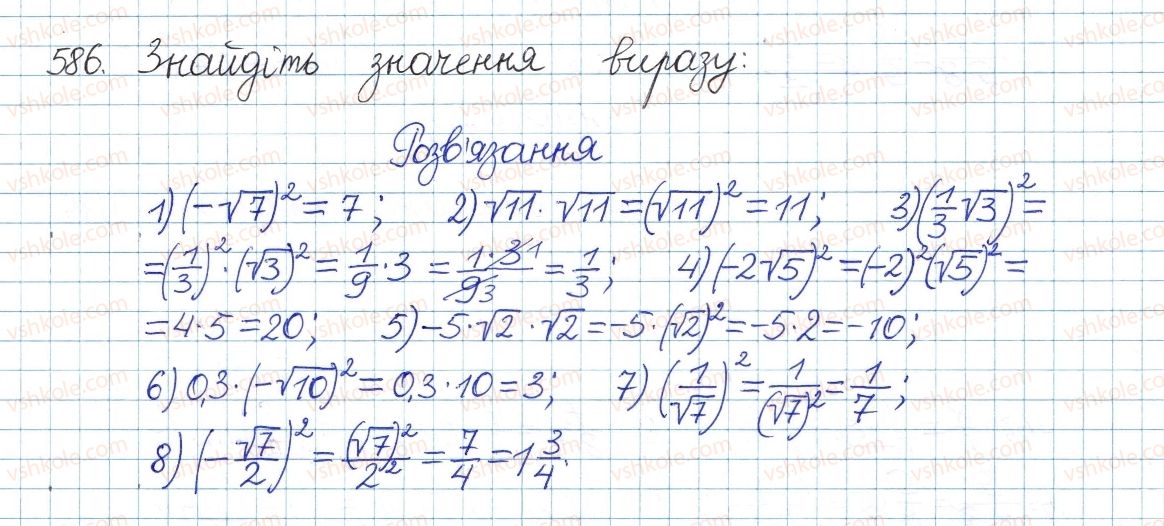 586. Знайдіть значення виразу:
Розв'язання
1) (-√7)² = 7; 2) √11 · √11 = (√11)² = 11; 3) (1/3 √3)² =
= (1/3)² · (√3)² = 1/9 · 3 = 1·3 1/9 3 = 1/3; 4) (-2√5)² = (-2)² (√5)² =
= 4 · 5 = 20; 5) -5 · √2 · √2 = -5 · (√2)² = -5 · 2 = -10;
6) 0,3 · (-√10)² = 0,3 · 10 = 3; 7) (1/√7)² = 1/(√7)² = 1/7;
8) (-√7/2)² = (√7)²/2² = 7/4 = 1 3/4.
vshkole.com